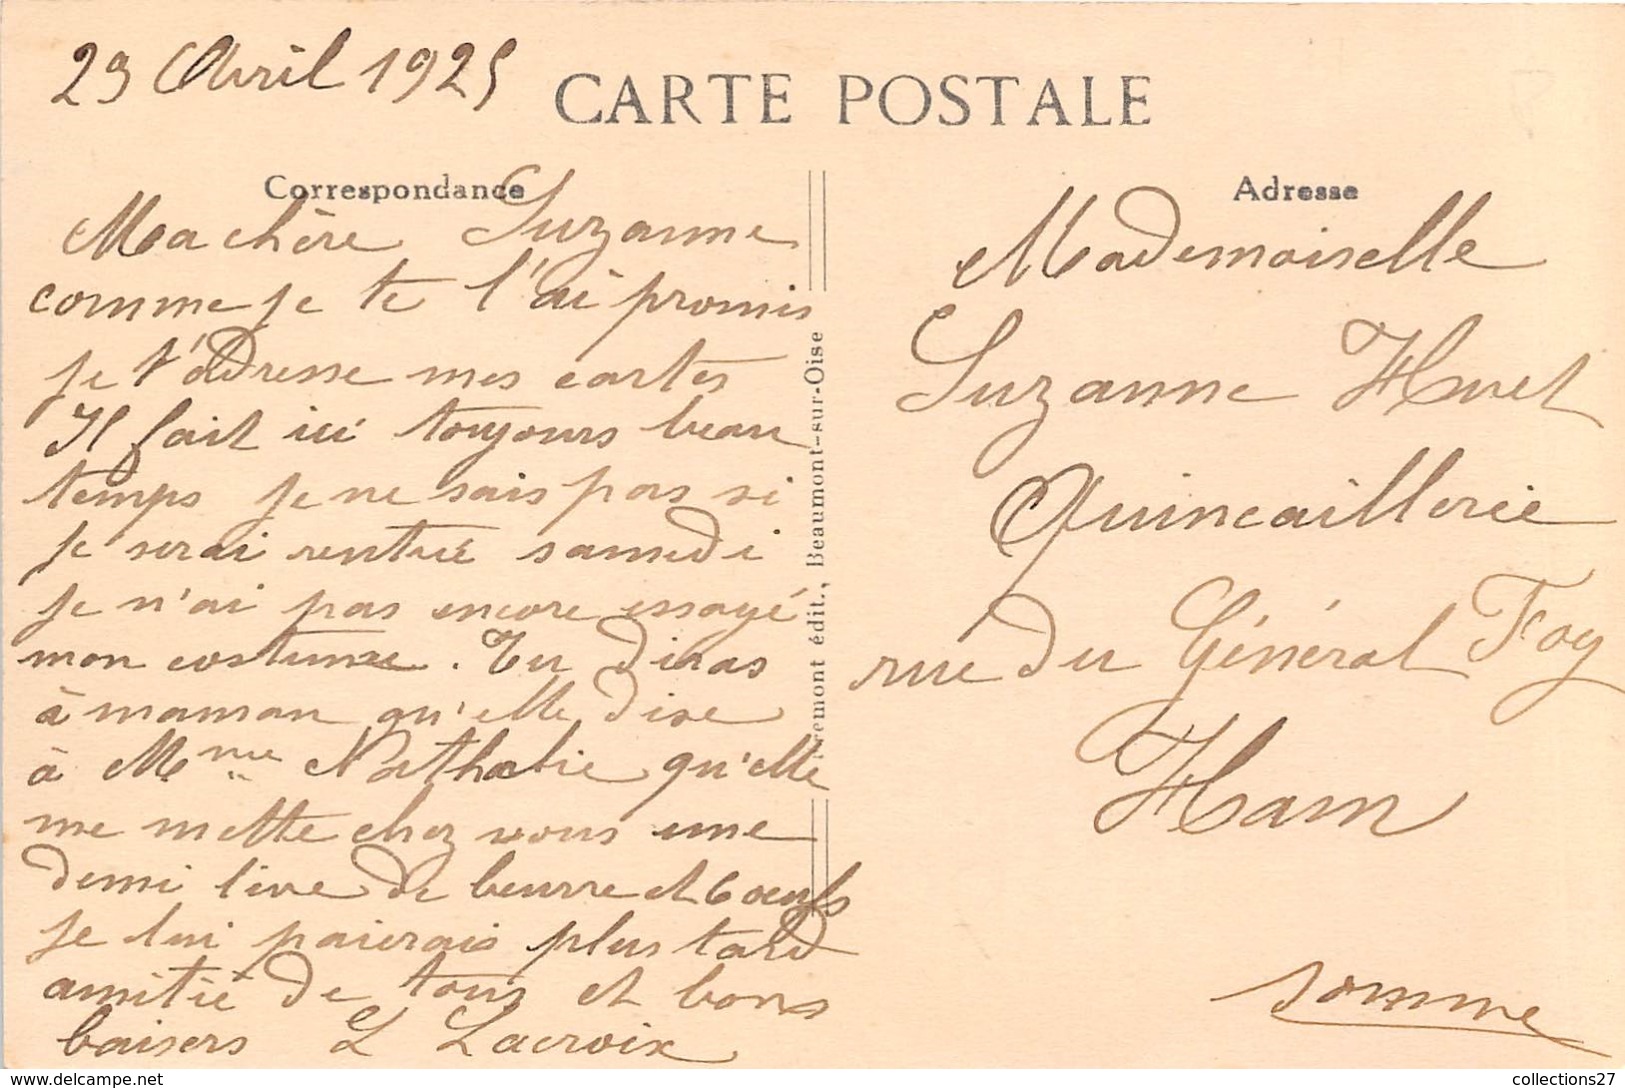 29 Avril 1925
CARTE POSTALE
Correspondance
Ma chère Suzanne
comme je te l'ai promis
je t'adresse mes cartes
Il fait ici toujours beau
temps je ne sais pas si
je serai rentrée samedi
je n'ai pas encore essayé
mon costume. Tu diras
à maman qu'elle dise
à Mme Nathalie qu'elle
me mette chez vous une
demi livre de beurre et 6 œufs
je lui paierais plus tard
amitié de tous et bons
baisers L Lacroix
Frémont édit., Beaumont-sur-Oise
Adresse
Mademoiselle
Suzanne Huet
Quincaillerie
rue du Général Foy
Ham
Somme
collections27